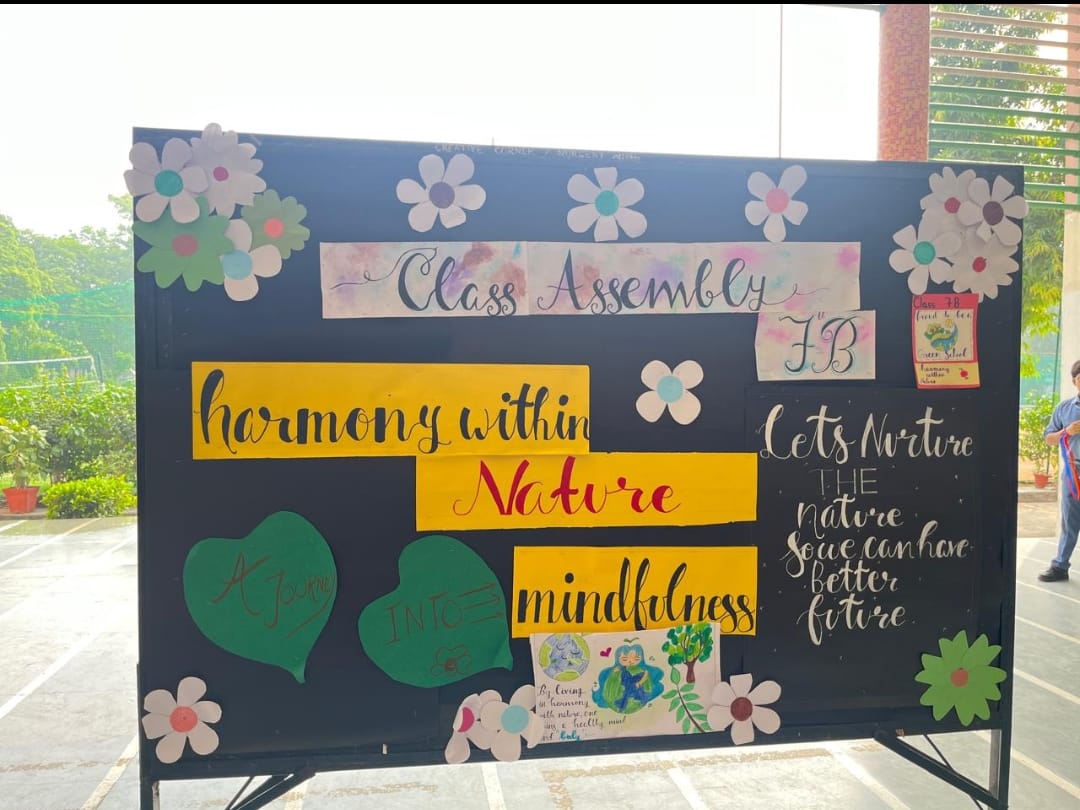 CREATIVE CORNER /
Class Assembly
7th B
Class 7B
Proud to be a
Green School
harmony
within
Nature
harmony within
Nature
Lets Nurture
THE
nature
so we can have
better
future.
A JOURNEY
INTO
mindfulness
By living
in harmony
with nature, one
a healthy mind